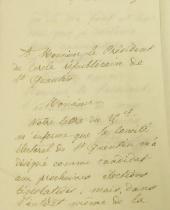 A Monsieur le Président
du Cercle républicain de
St Quentin
Monsieur
Votre lettre du
m'informe que le Comité
électoral de St Quentin m'a
désigné comme candidat
aux prochaines élections
législatives ; mais, dans
l'intérêt même de la